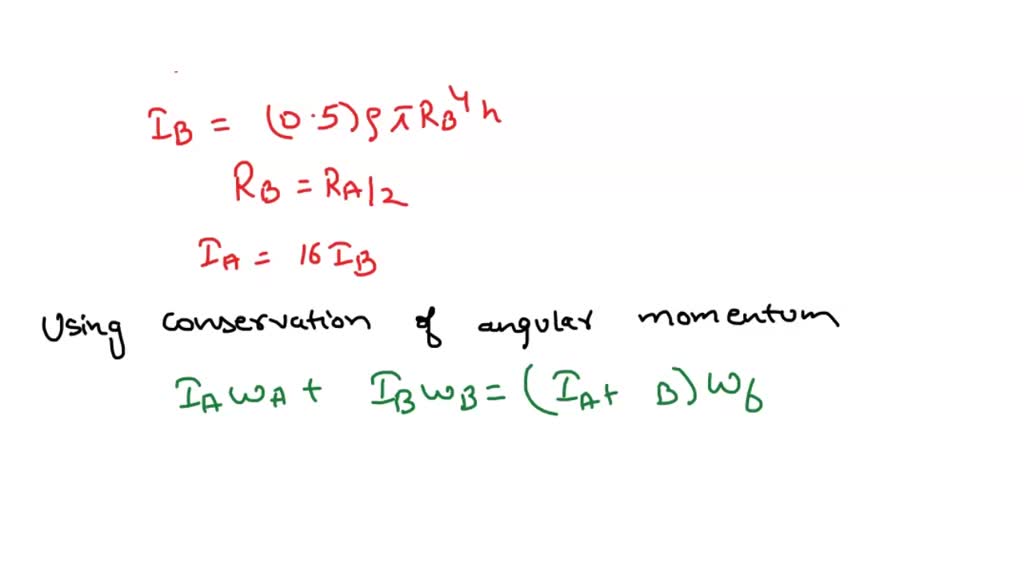 I_B = (0.5) ρ π R_B^4 h
R_B = R_A/2
I_A = 16 I_B
Using conservation of angular momentum
I_A ω_A + I_B ω_B = (I_A + B) ω_f